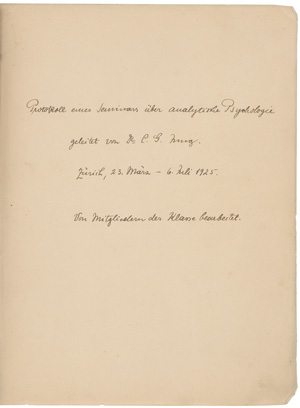 Protokoll eines Seminars über analytische Psychologie
geleitet von Dr. C. G. Jung.
Zürich, 23. März – 6. Juli 1925.
Von Mitgliedern der Klasse bearbeitet.